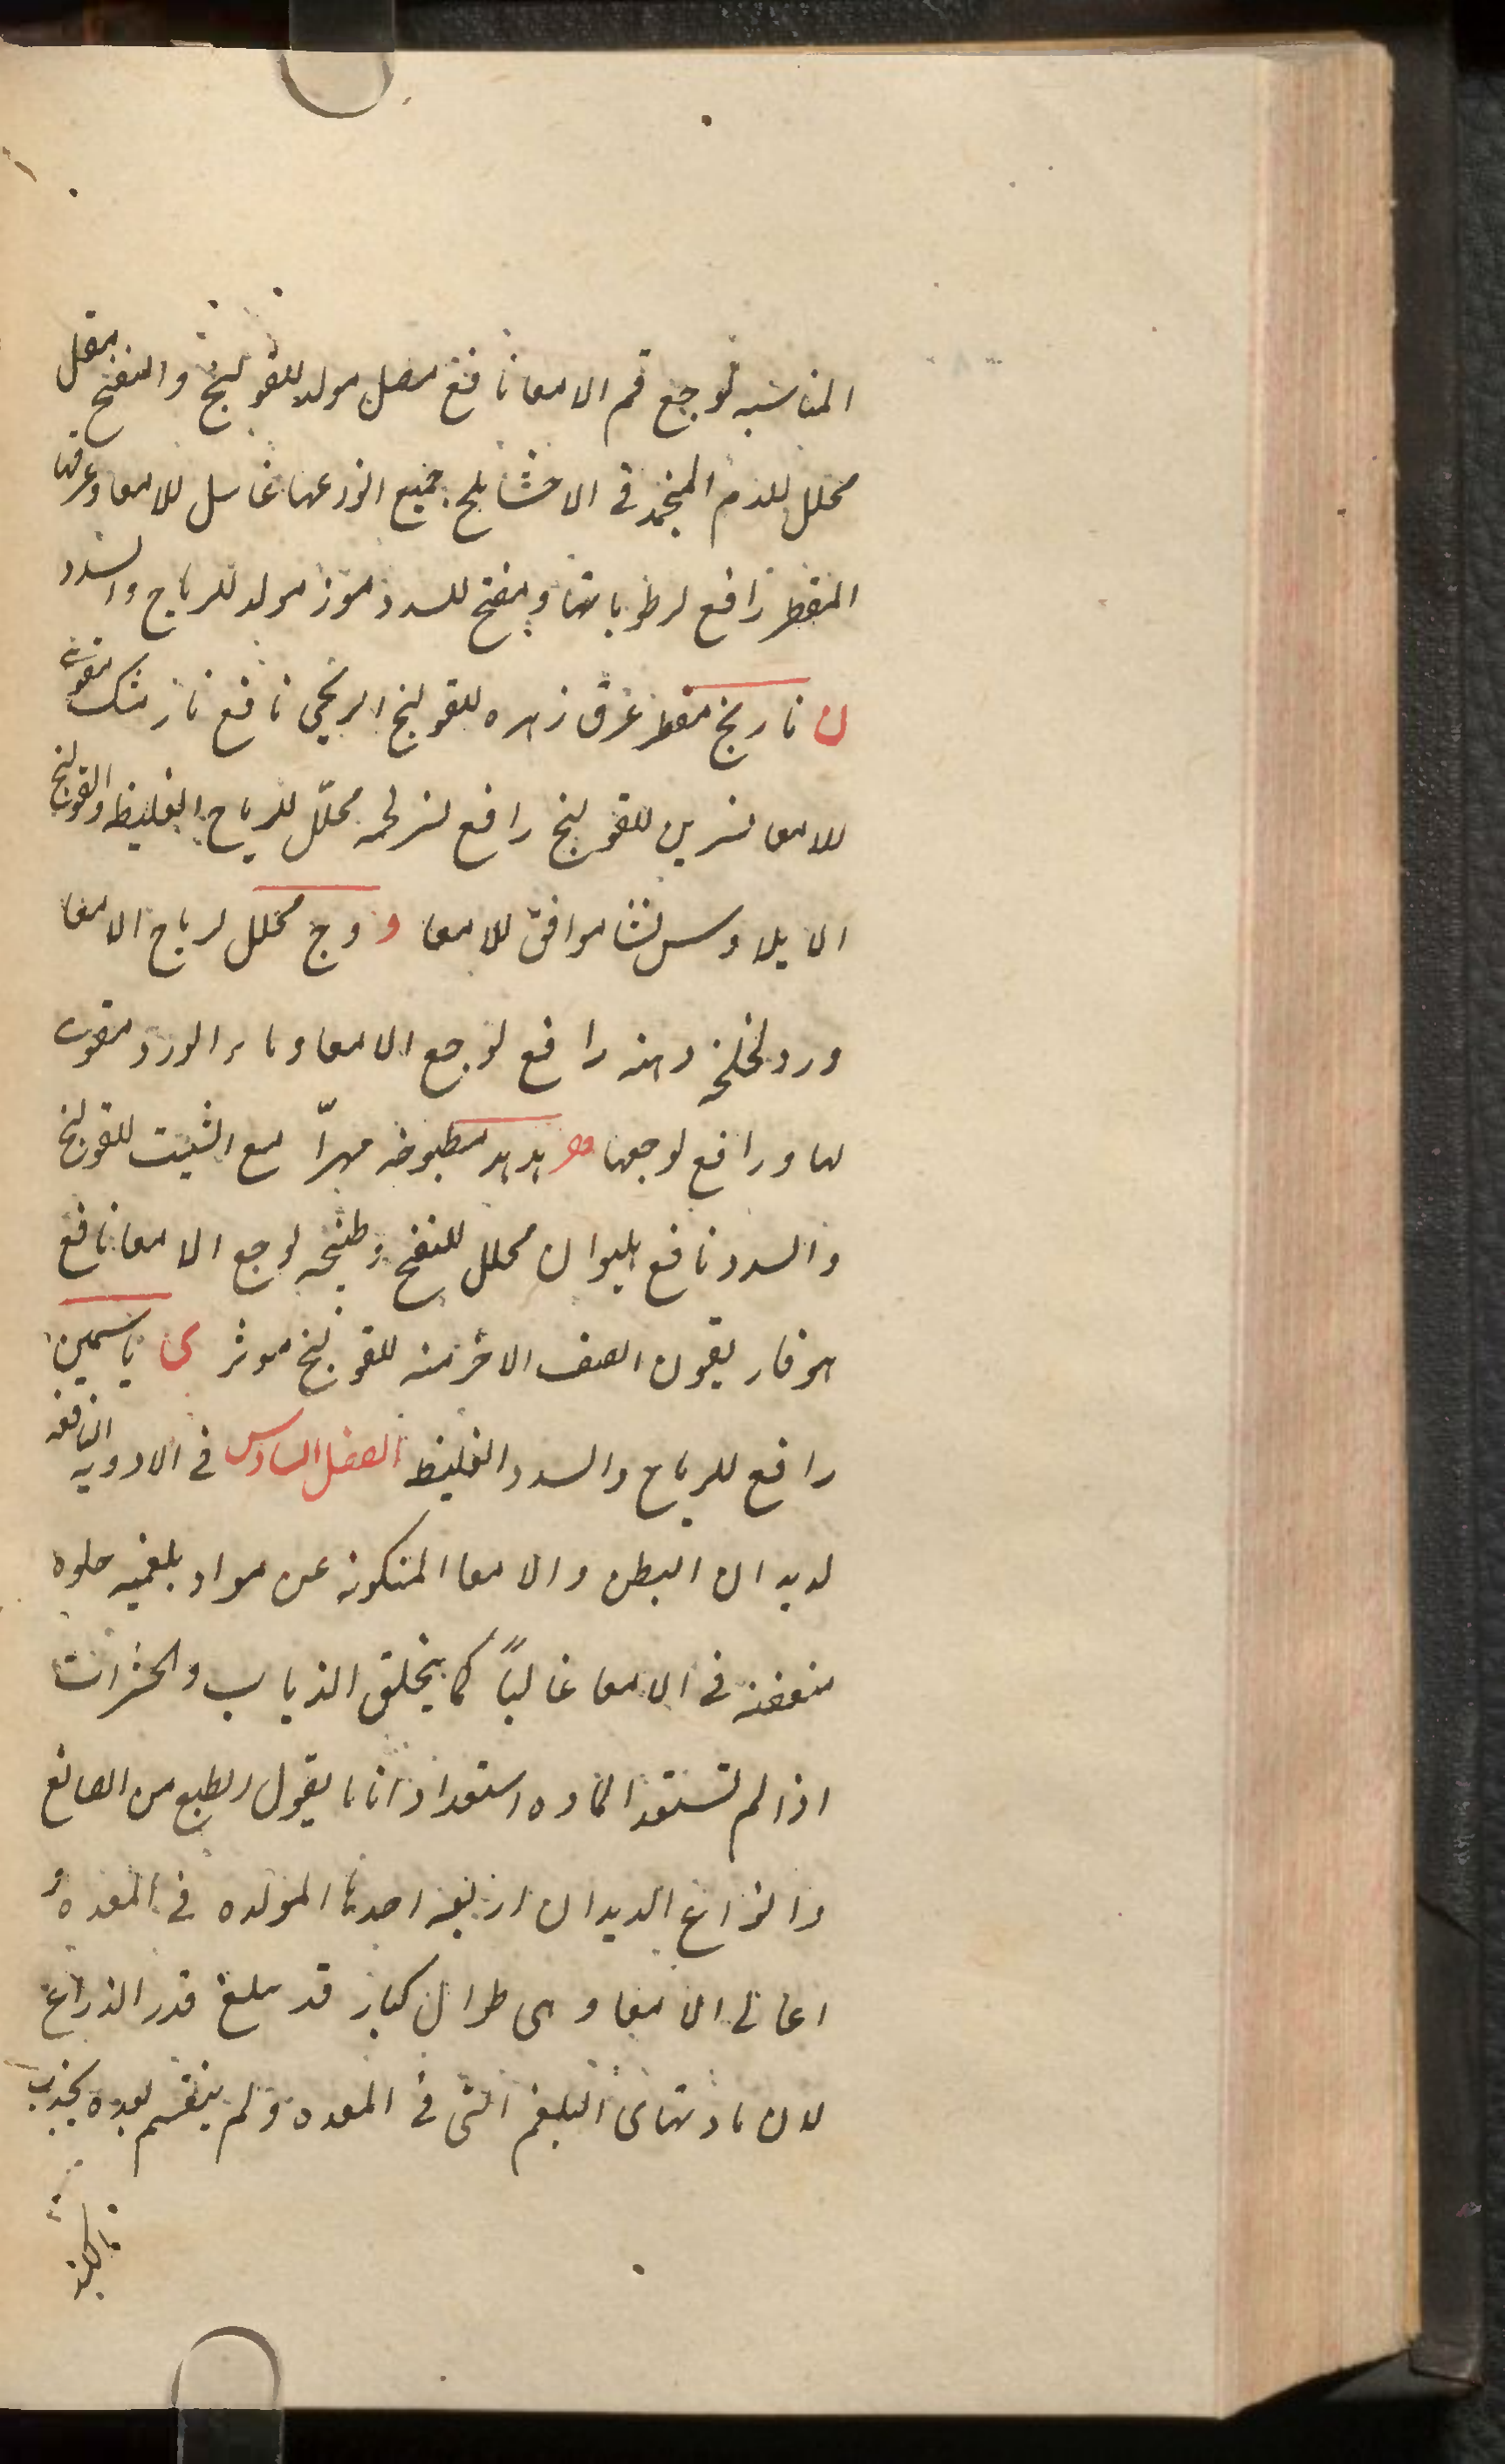 المناسبه لوجع فم الامعا نافع مصل مولد للقولنج والنفخ مقل
محلل للدم المنجمد فى الاحشا ملح بجميع انواعها غاسل للامعا وعرقها
المقطر رافع لرطوباتها ومفتح للسدد موز مولد للرياح والسدد
ن نارنج مقطر عرق زهره للقولنج الريحى نافع نارمشك مقوى
للامعا نسرين للقولنج رافع لنزلجه محلّل للرياح الغليظه والقولنج
الايلاوس نشا موافق للامعا و وج محلل لرياح الامعا
ورد لخلخه دهنه رافع لوجع الامعا وماء الورد مقوى
لها ورافع لوجعها ه هدهد مطبوخه مهرّا مع الشبت للقولنج
والسدد نافع هليوان محلل للنفخ وطبخه لوجع الامعا نافع
هوفاريقون الصنف الاخر منه للقولنج موثر ى ياسمين
رافع للرياح والسدد الغليظ الفصل السادس فى الادويه النافعه
لديدان البطن والامعا المتكونه عن مواد بلغميه حلوه
متعفنه فى الامعا غالباً كما يتخلق الذباب والحشرات
اذا لم تستعد الماده استعدادا تاما يقول الطبع من الصانع
وانواع الديدان اربعه احدها المولده فى المعده و
اعالى الامعا وهى طوال كبار قد يبلغ قدر الذراع
لان مادتها البلغم التى فى المعده ولم ينقسم بعده بجذب